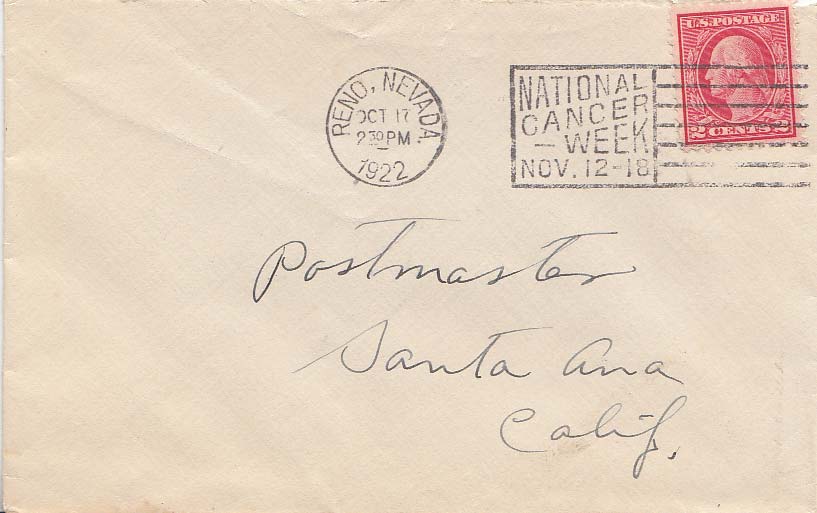 U.S. POSTAGE
2 CENTS 2
RENO, NEVADA
OCT 17
2 30 PM
1922
NATIONAL
CANCER
— WEEK
NOV. 12-18
Postmaster
Santa Ana
Calif.